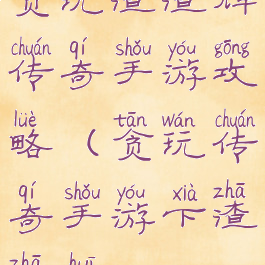 chuán qí shǒu yóu gōng
传奇手游攻
lüè tān wán chuán
略（贪玩传
qí shǒu yóu xià zhā
奇手游下渣